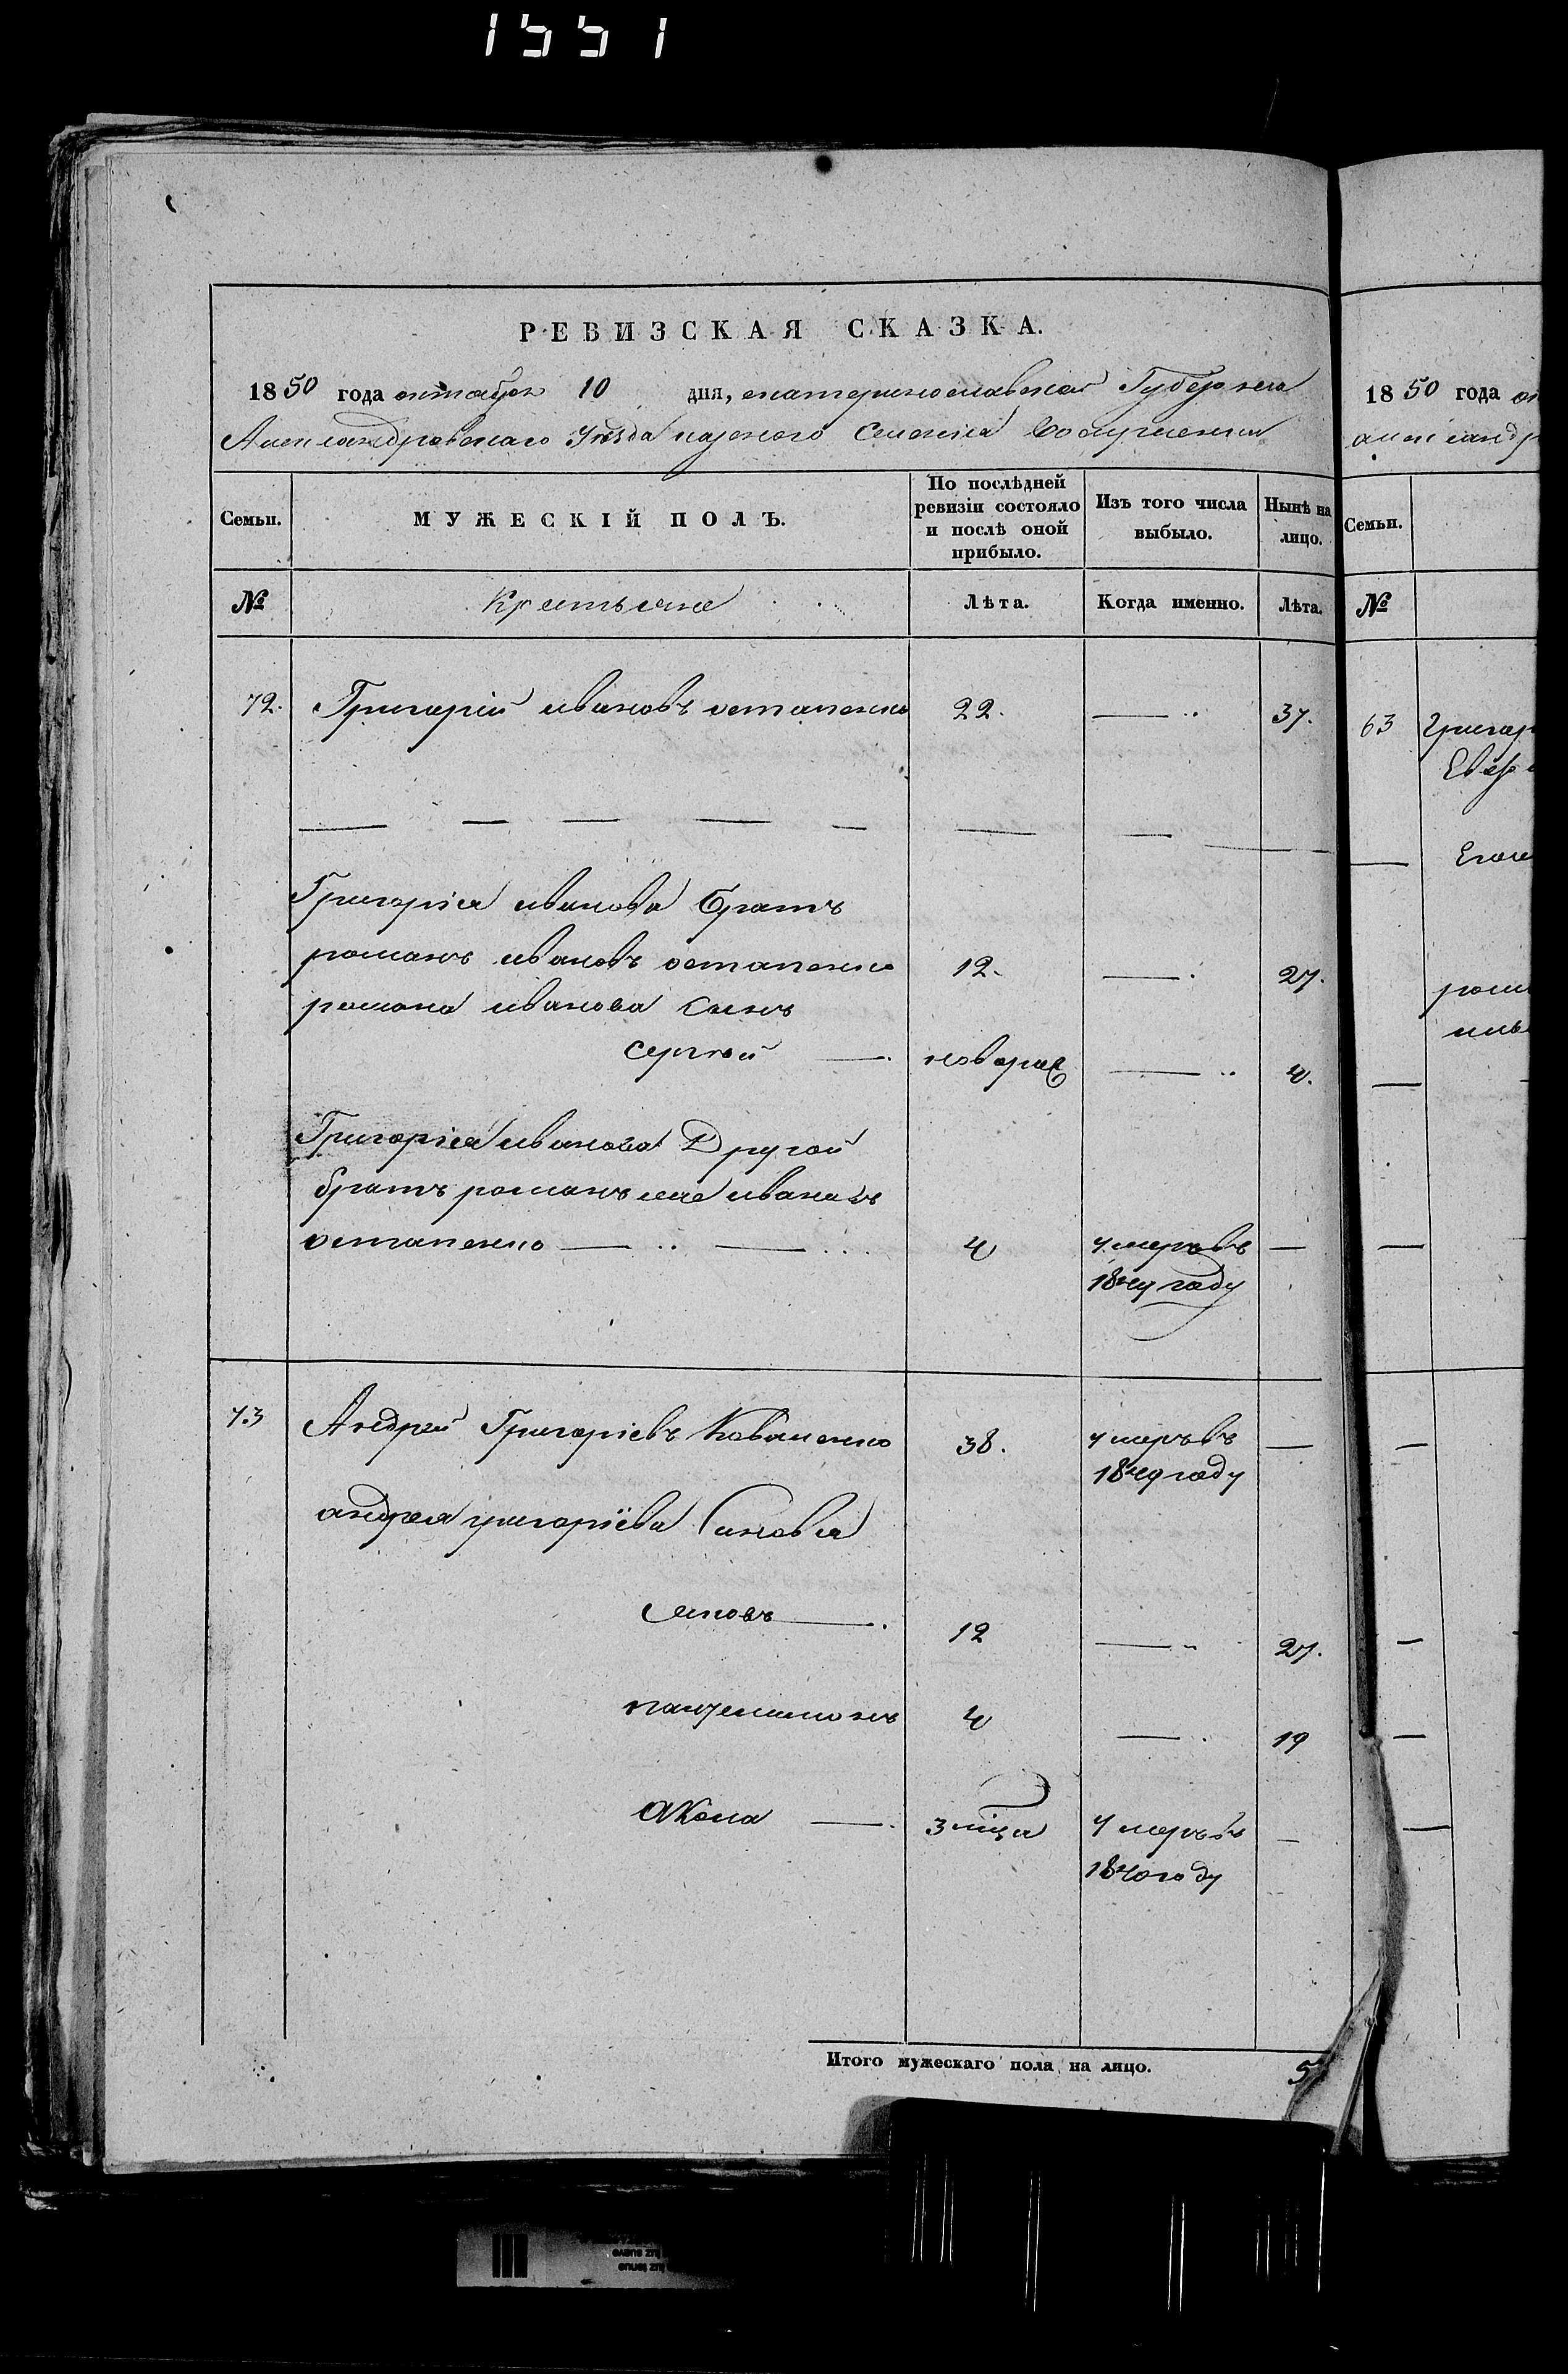 1551
РЕВИЗСКАЯ СКАЗКА.
1850 года октабра 10 дня, екатеринославской Губернии
Александровскаго Уезда казеного Селения
Семьи. МУЖЕСКІЙ ПОЛЪ. По послѣдней ревизіи состояло и послѣ оной прибыло. Изъ того числа выбыло. Нынѣ на лицо.
№ Крестьяне Лѣта. Когда именно. Лѣта.
72. Григорій ивановъ остапенко 22. 37.
Григорія иванова братъ
романъ ивановъ остапенко 12. 27.
романа иванова сынъ
сергей новорож 4.
Григорія иванова Другой
братъ романъ же ивановъ
остапенко 4 умеръ въ
1849 году
73 Андрей Григоріевъ Коваленко 38. умеръ въ
1849 году
андрея григоріева Синовья
12 27.
пантелимонъ 4 19
3 міца умеръ въ
1840 году
Итого мужескаго пола на лицо. 5
1850 года
Семьи.
№
63 Григор